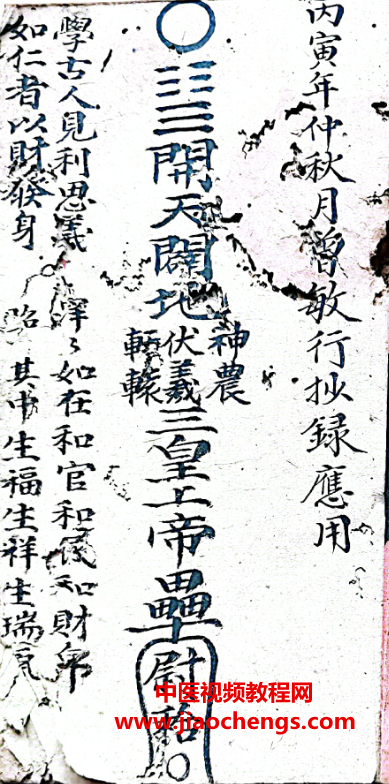 丙寅年仲秋月曾敏行抄錄應用
開天闢地
神農
伏羲
軒轅
三皇上帝
學古人見利思義
如在和官和民和財帛
如仁者以財發身
其中生福生祥生瑞氣
中医视频教程网
www.jiaochengs.com